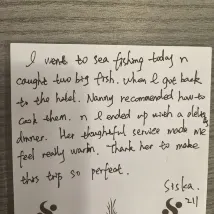 I went to sea fishing today n
caught two big fish. when I got back
to the hotel. Nanny recommended how to
cook them. n I ended up with a
dinner. Her thoughtful service made me
feel really warm. Thank her to make
this trip so perfect.
Siska.
211